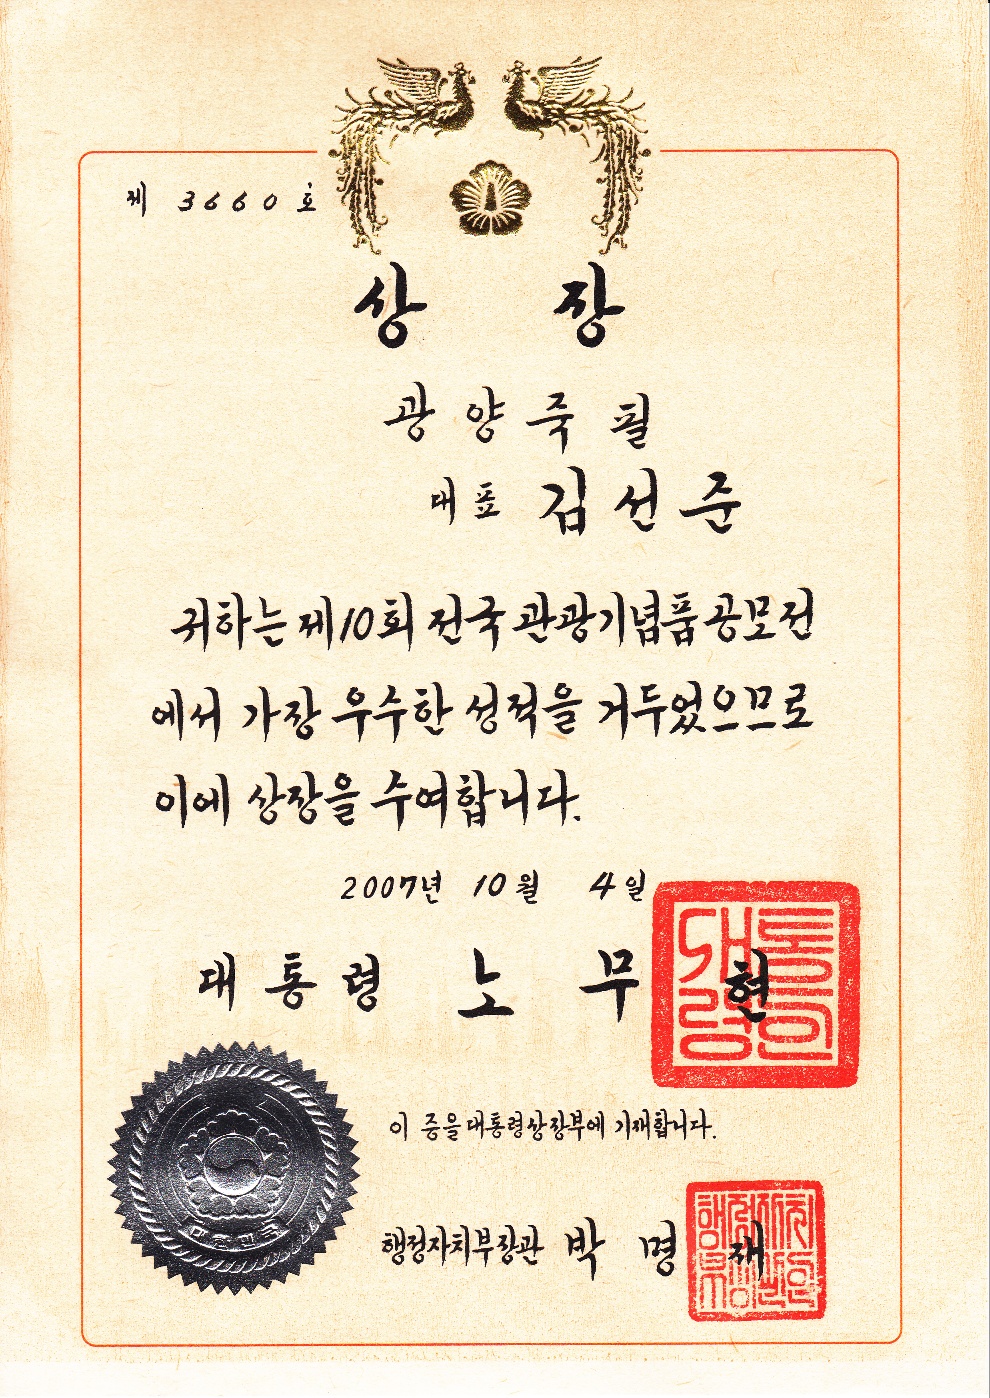 제 3660 호
상 장
광 양 죽 필
대표 김 선 준
귀하는 제10회 전국 관광기념품 공모전
에서 가장 우수한 성적을 거두었으므로
이에 상장을 수여합니다.
2007년 10월 4일
대 통 령 노 무 현
대통령의인
이 증을 대통령상장부에 기재합니다.
행정자치부장관 박 명 재
대한민국